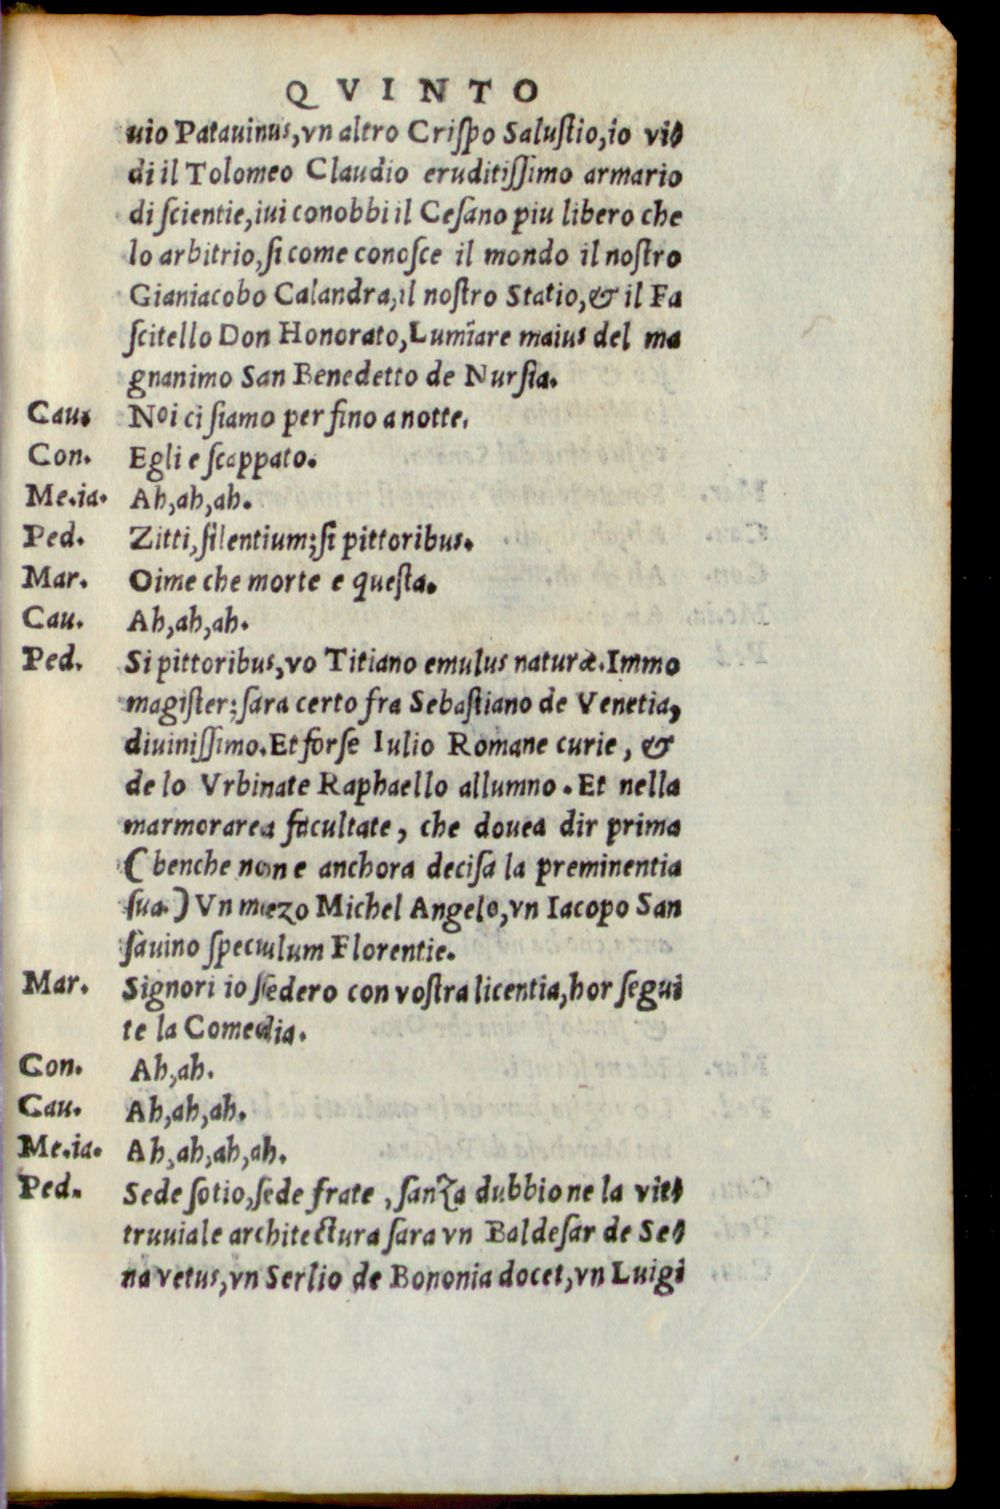 QVINTO
uio Patauinus, vn altro Crispo Salustio, io vi-
di il Tolomeo Claudio eruditissimo armario
di scientie, iui conobbi il Cesano piu libero che
lo arbitrio, si come conosce il mondo il nostro
Gianiacobo Calandra, il nostro Statio, & il Fa
scitello Don Honorato, Lumīare maius del ma
gnanimo San Benedetto de Nursia.
Cau. Noi ci siamo per fino a notte.
Con. Egli e scappato.
Me.ia. Ah, ah, ah.
Ped. Zitti, silentium; si pittoribus.
Mar. Oime che morte e questa.
Cau. Ah, ah, ah.
Ped. Si pittoribus, vo Titiano emulus naturæ. Immo
magister; sara certo fra Sebastiano de Venetia,
diuinissimo. Et forse Iulio Romane curie, &
de lo Vrbinate Raphaello allumno. Et nella
marmorarea facultate, che douea dir prima
(benche non e anchora decisa la preminentia
sua.) Vn mezo Michel Angelo, vn Iacopo San
sauino speculum Florentie.
Mar. Signori io sedero con vostra licentia, hor segui
te la Comedia.
Con. Ah, ah.
Cau. Ah, ah, ah.
Me.ia. Ah, ah, ah, ah.
Ped. Sede sotio, sede frate, sanza dubbio ne la vit-
truuiale architectura sara vn Baldesar de Se-
na vetus, vn Serlio de Bononia docet, vn Luigi